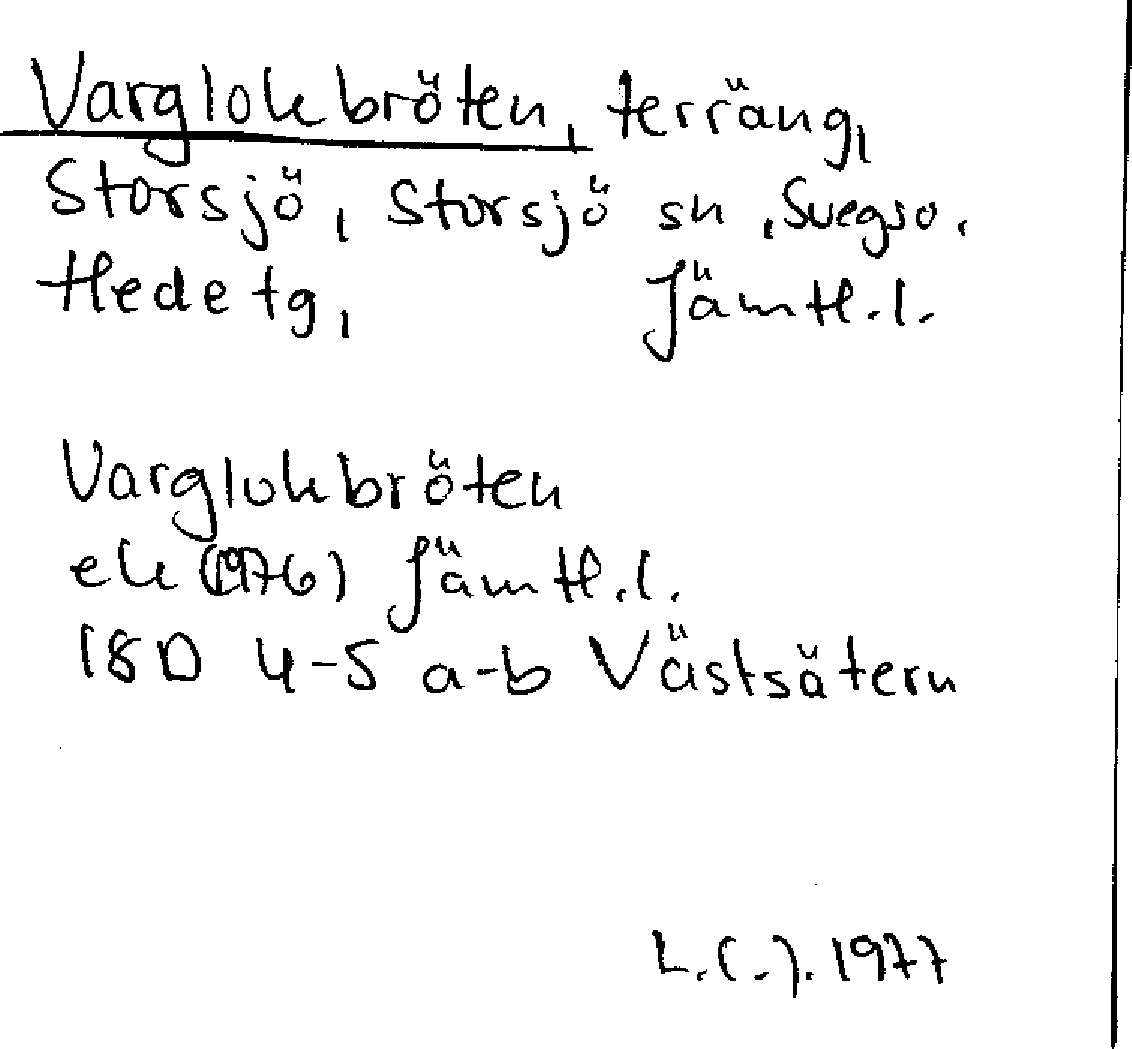 Varglokbröten, terräng,
Storsjö, Storsjö sn, Svegs o.
Hede tg, Jämtl.l.
Varglokbröten
ek (1976) Jämtl.l.
18D 4-5 a-b Västsätern
L.C.J. 1977